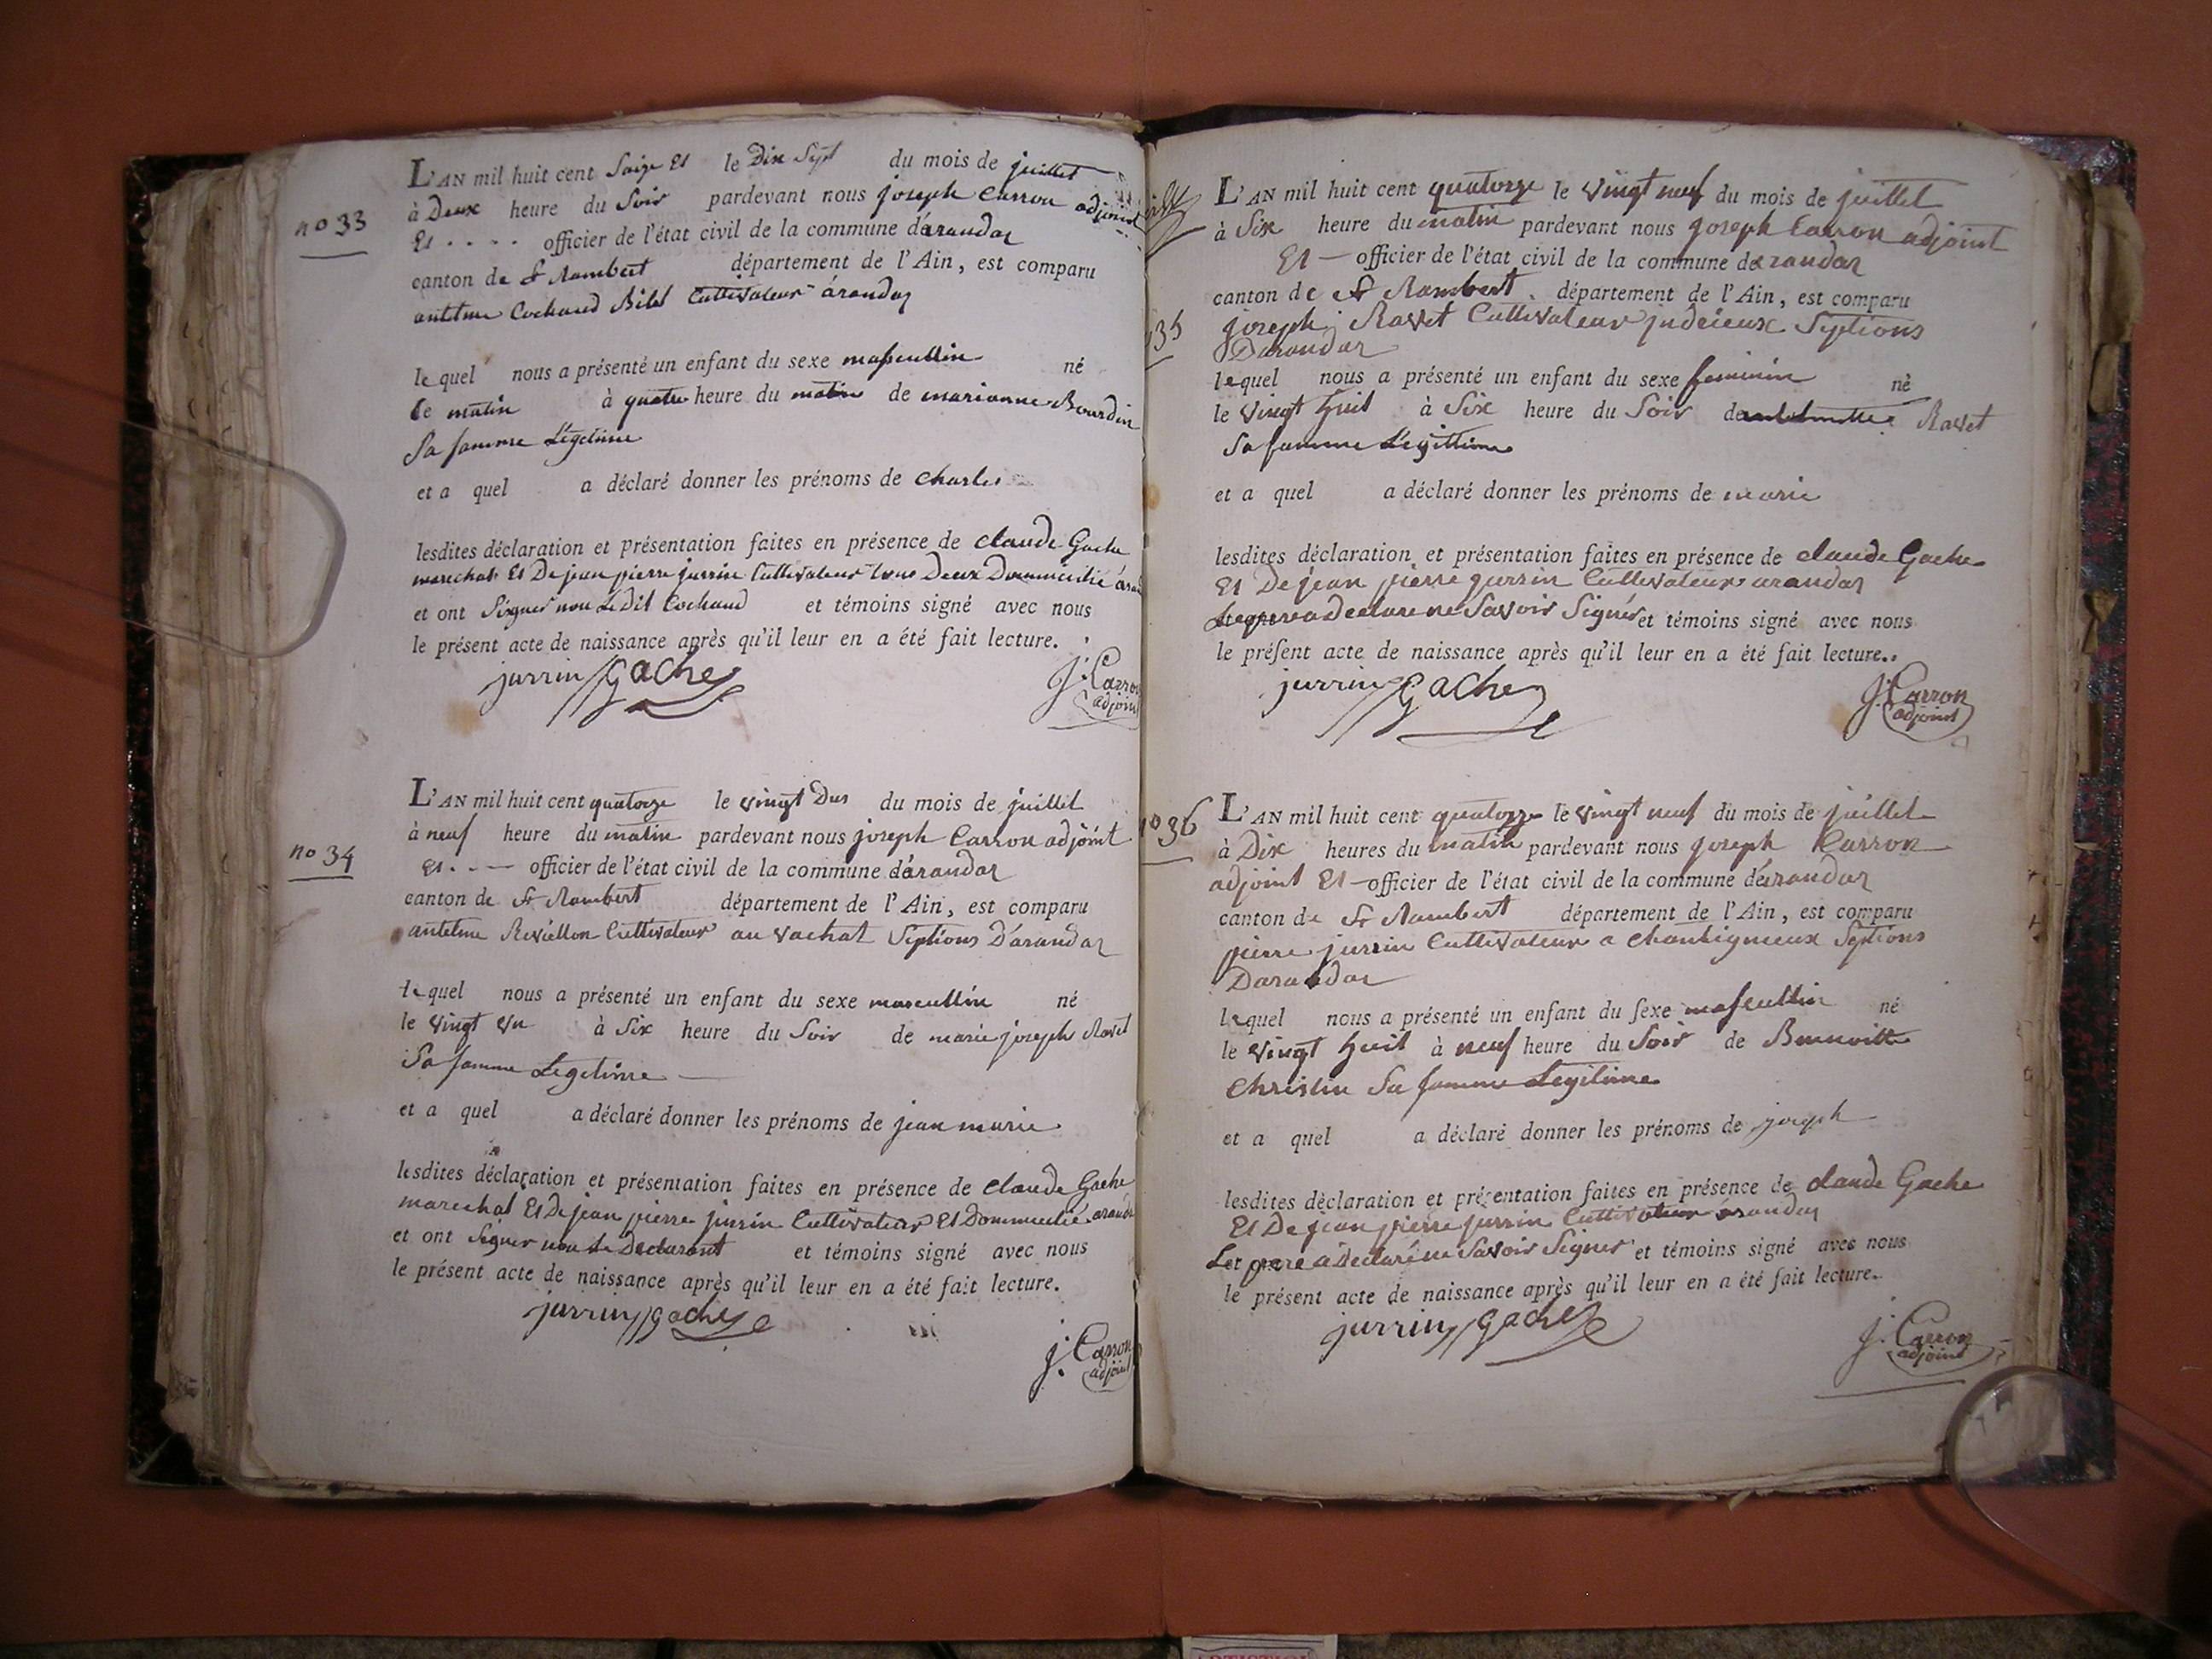 no 33
L'AN mil huit cent Saize Et le Dix Sept du mois de juillet
à Deux heure du Soir pardevant nous joseph Carron adjoint
Et .... officier de l'état civil de la commune d'árandas
canton de St Rambert département de l'Ain, est comparu
antelme Cochaud Bilet Cultivateur árandas
lequel nous a présenté un enfant du sexe masculin né
le matin à quatre heure du matin de marianne Bourdin
Sa famme Légetime
et a quel a déclaré donner les prénoms de Charles
lesdites déclaration et présentation faites en présence de claude Gache
marechal Et De jean pierre jurrin Cultivateur tous Deux Dommicilié
et ont Signer non Le Dit Cochaud et témoins signé avec nous
le présent acte de naissance après qu'il leur en a été fait lecture.
jurrin Gache
j. Carron
adjoint
no 34
L'AN mil huit cent quatorze le vingt Dus du mois de juillet
à neuf heure du matin pardevant nous joseph Carron adjoint
Et officier de l'état civil de la commune d'árandas
canton de St Rambert département de l'Ain, est comparu
antelme Reviellon Cultivateur au vachat Septions D'arandas
lequel nous a présenté un enfant du sexe mascullin né
le vingt vn à Six heure du Soir de marie joseph Ravet
Sa famme Legetime
et a quel a déclaré donner les prénoms de jean marie
lesdites déclaration et présentation faites en présence de claude Gache
marechal Et De jean pierre jurrin Cultivateur Et Dommicilié
et ont Signer non Le Declarant et témoins signé avec nous
le présent acte de naissance après qu'il leur en a été fait lecture.
jurrin gache
j. Carron
adjoint
L'AN mil huit cent quatorze le vingt neuf du mois de juillet
à Six heure du matin pardevant nous joseph Carron adjoint
Et officier de l'état civil de la commune de randas
canton de St Rambert département de l'Ain, est comparu
35
joseph Ravet Cultivateur judrieux Septions
Darandas
lequel nous a présenté un enfant du sexe feminin né
le vingt huit à Six heure du Soir de Ravet
Sa famme Legittime
et a quel a déclaré donner les prénoms de marie
lesdites déclaration et présentation faites en présence de claude Gache
Et De jean pierre jurrin Cultivateur arandas
Le pere a declare ne Savoir Signer et témoins signé avec nous
le présent acte de naissance après qu'il leur en a été fait lecture.
jurrin Gache
j. Carron
adjoint
no 36
L'AN mil huit cent quatorze le vingt neuf du mois de juillet
à Dix heures du matin pardevant nous joseph Carron
adjoint Et officier de l'état civil de la commune d'árandas
canton de St Rambert département de l'Ain, est comparu
pierre jurrin Cultivateur a Chantigneux Septions
Darandas
lequel nous a présenté un enfant du sexe mascullin né
le vingt huit à neuf heure du Soir de Bennoitte
Christin Sa famme Legitime
et a quel a déclaré donner les prénoms de joseph
lesdites déclaration et présentation faites en présence de claude Gache
Et De jean pierre jurrin Cultivateur árandas
Le pere a declaré ne Savoir Signer et témoins signé avec nous
le présent acte de naissance après qu'il leur en a été fait lecture.
jurrin gache
j. Carron
adjoint